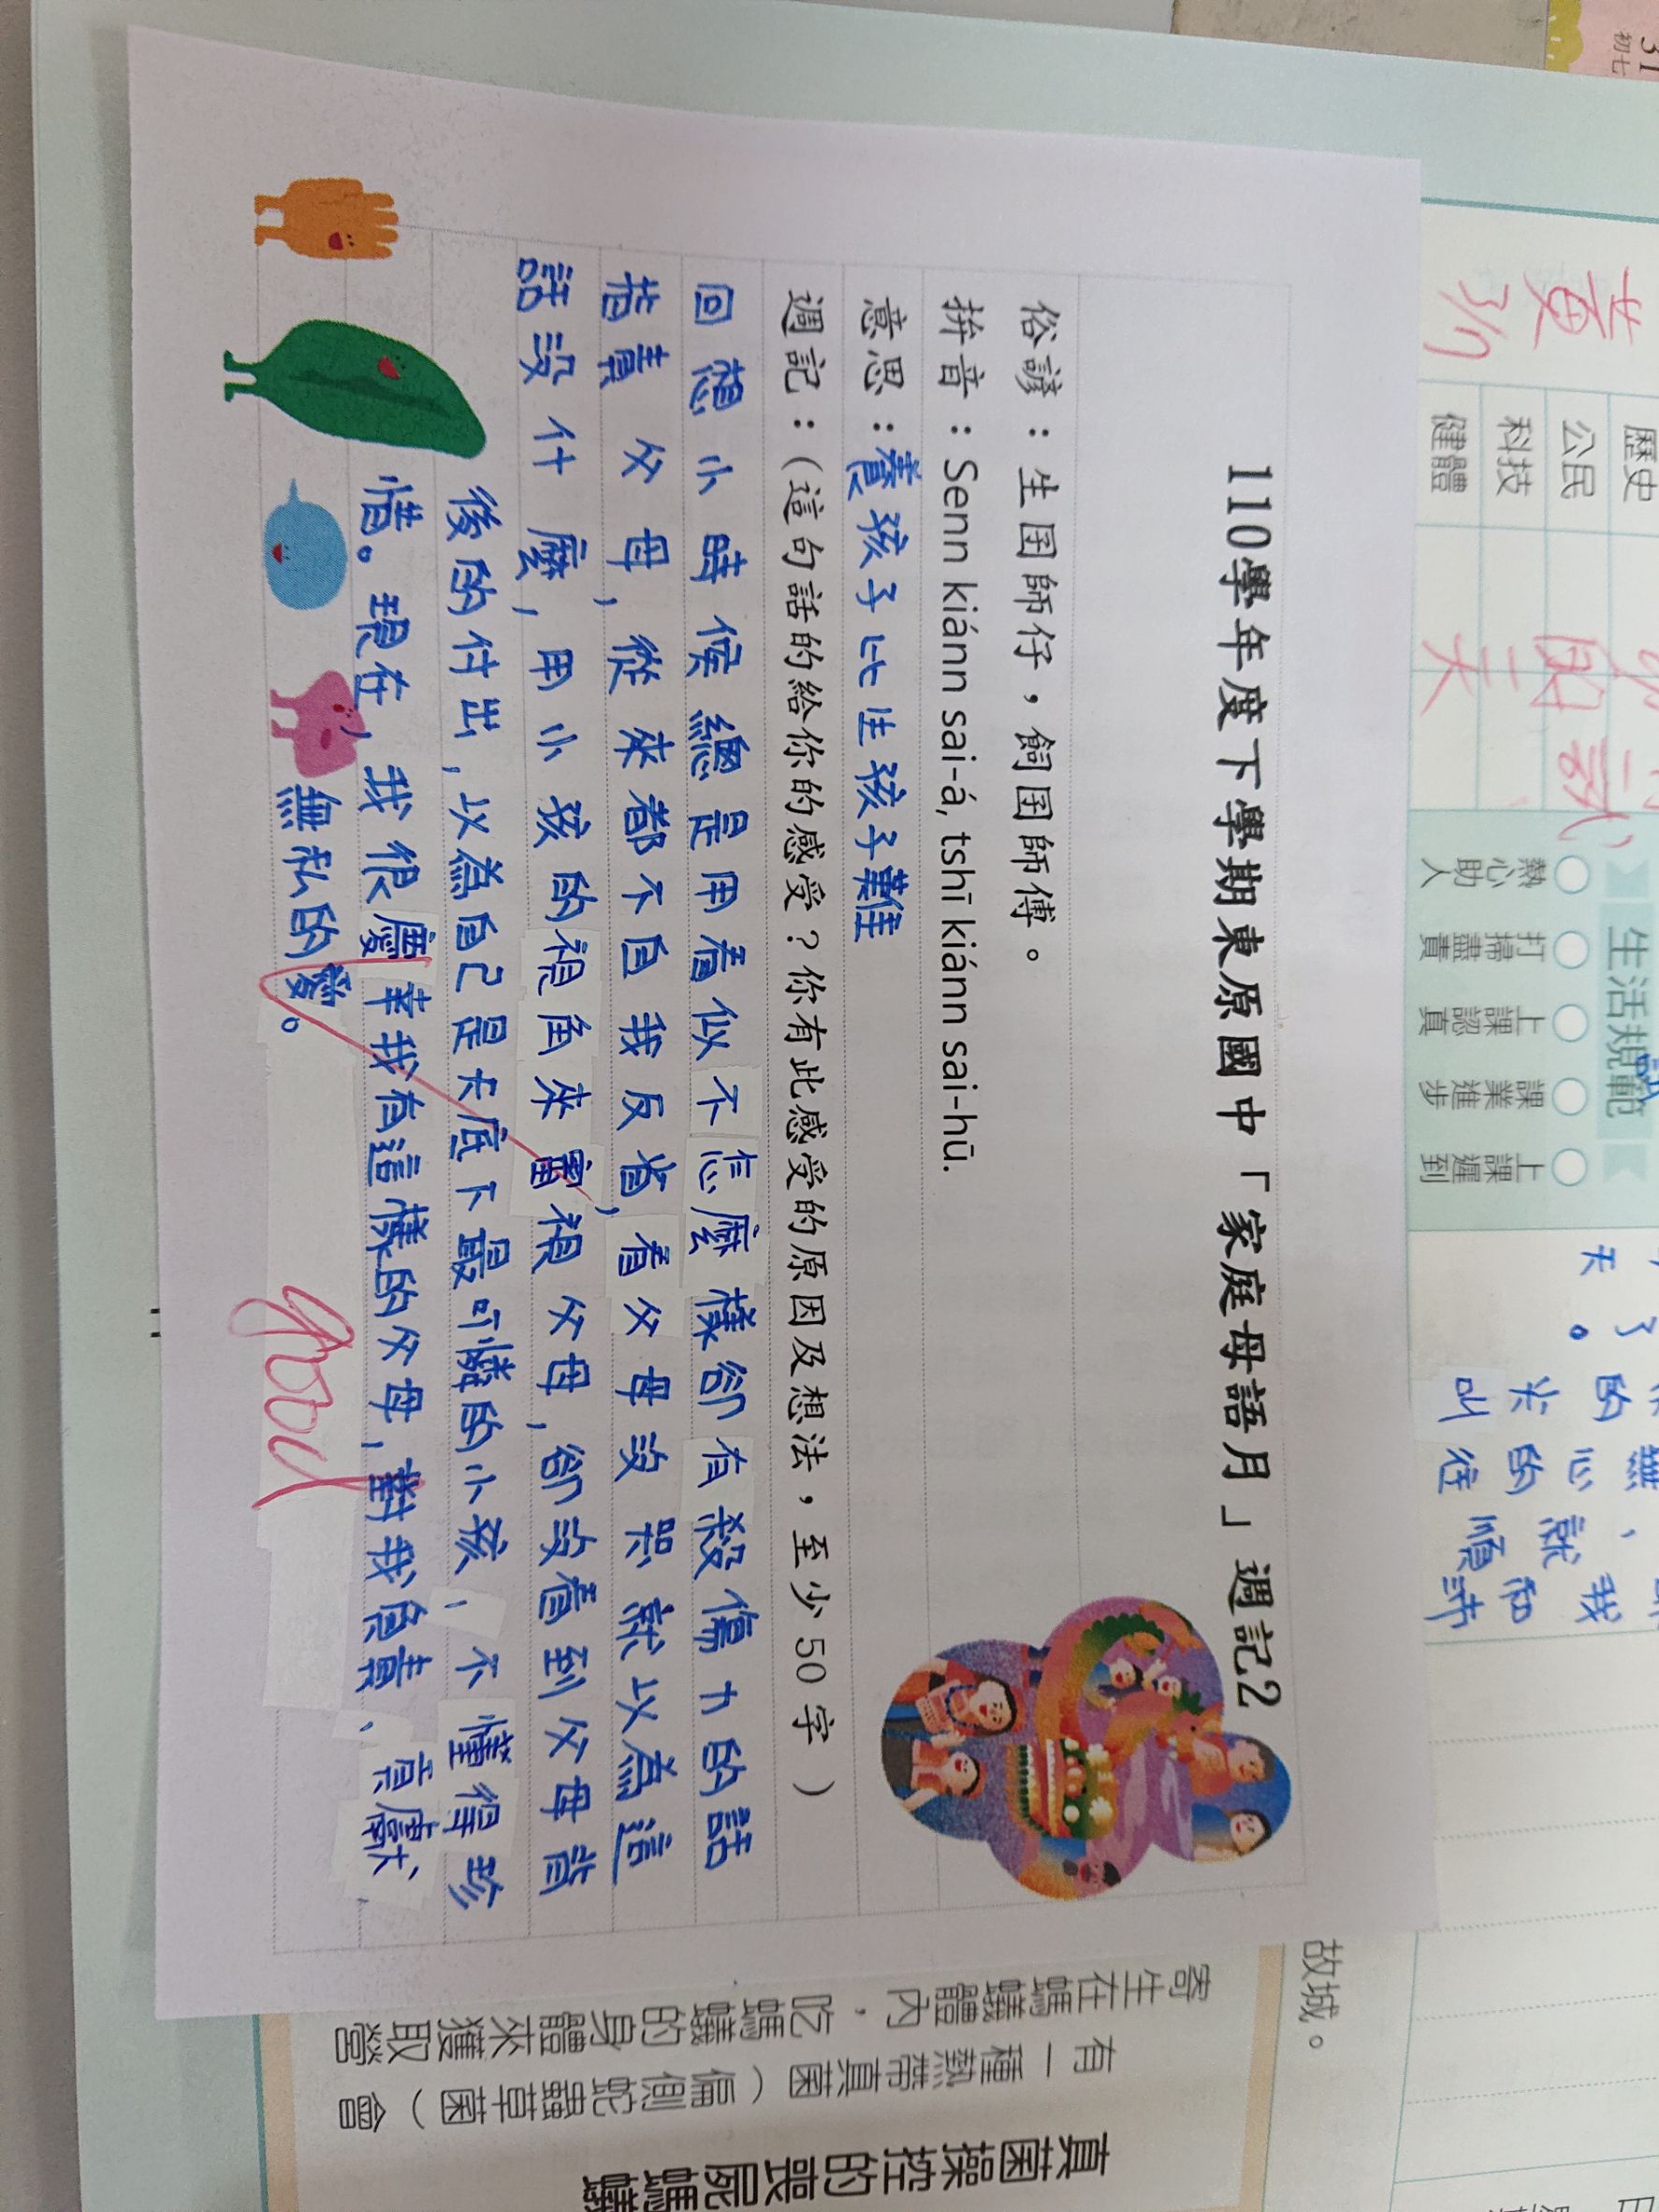 110學年度下學期東原國中「家庭母語月」週記2
俗諺：生囝師仔，飼囝師傅。
拼音：Senn kiánn sai-á, tshī kiánn sai-hū.
意思：養孩子比生孩子難
週記：（這句話的給你的感受？你有此感受的原因及想法，至少50字）
回想小時候總是用看似不怎麼樣卻有殺傷力的話
指責父母，從來都不自我反省，看父母沒哭就以為這
話沒什麼，用小孩的視角來審視父母，卻沒看到父母背
後的付出，以為自己是天底下最可憐的小孩，不懂得珍
惜。現在，我很慶幸我有這樣的父母，對我負責、貢獻
無私的愛。
good
歷史
公民
科技
健體
生活規範
熱心助人
打掃盡責
上課認真
課業進步
上課遲到
故城。
真菌操控的喪屍螞蟻
有一種熱帶真菌（偏側蛇蟲草菌）會
寄生在螞蟻體內，吃螞蟻的身體來獲取營
31
初七